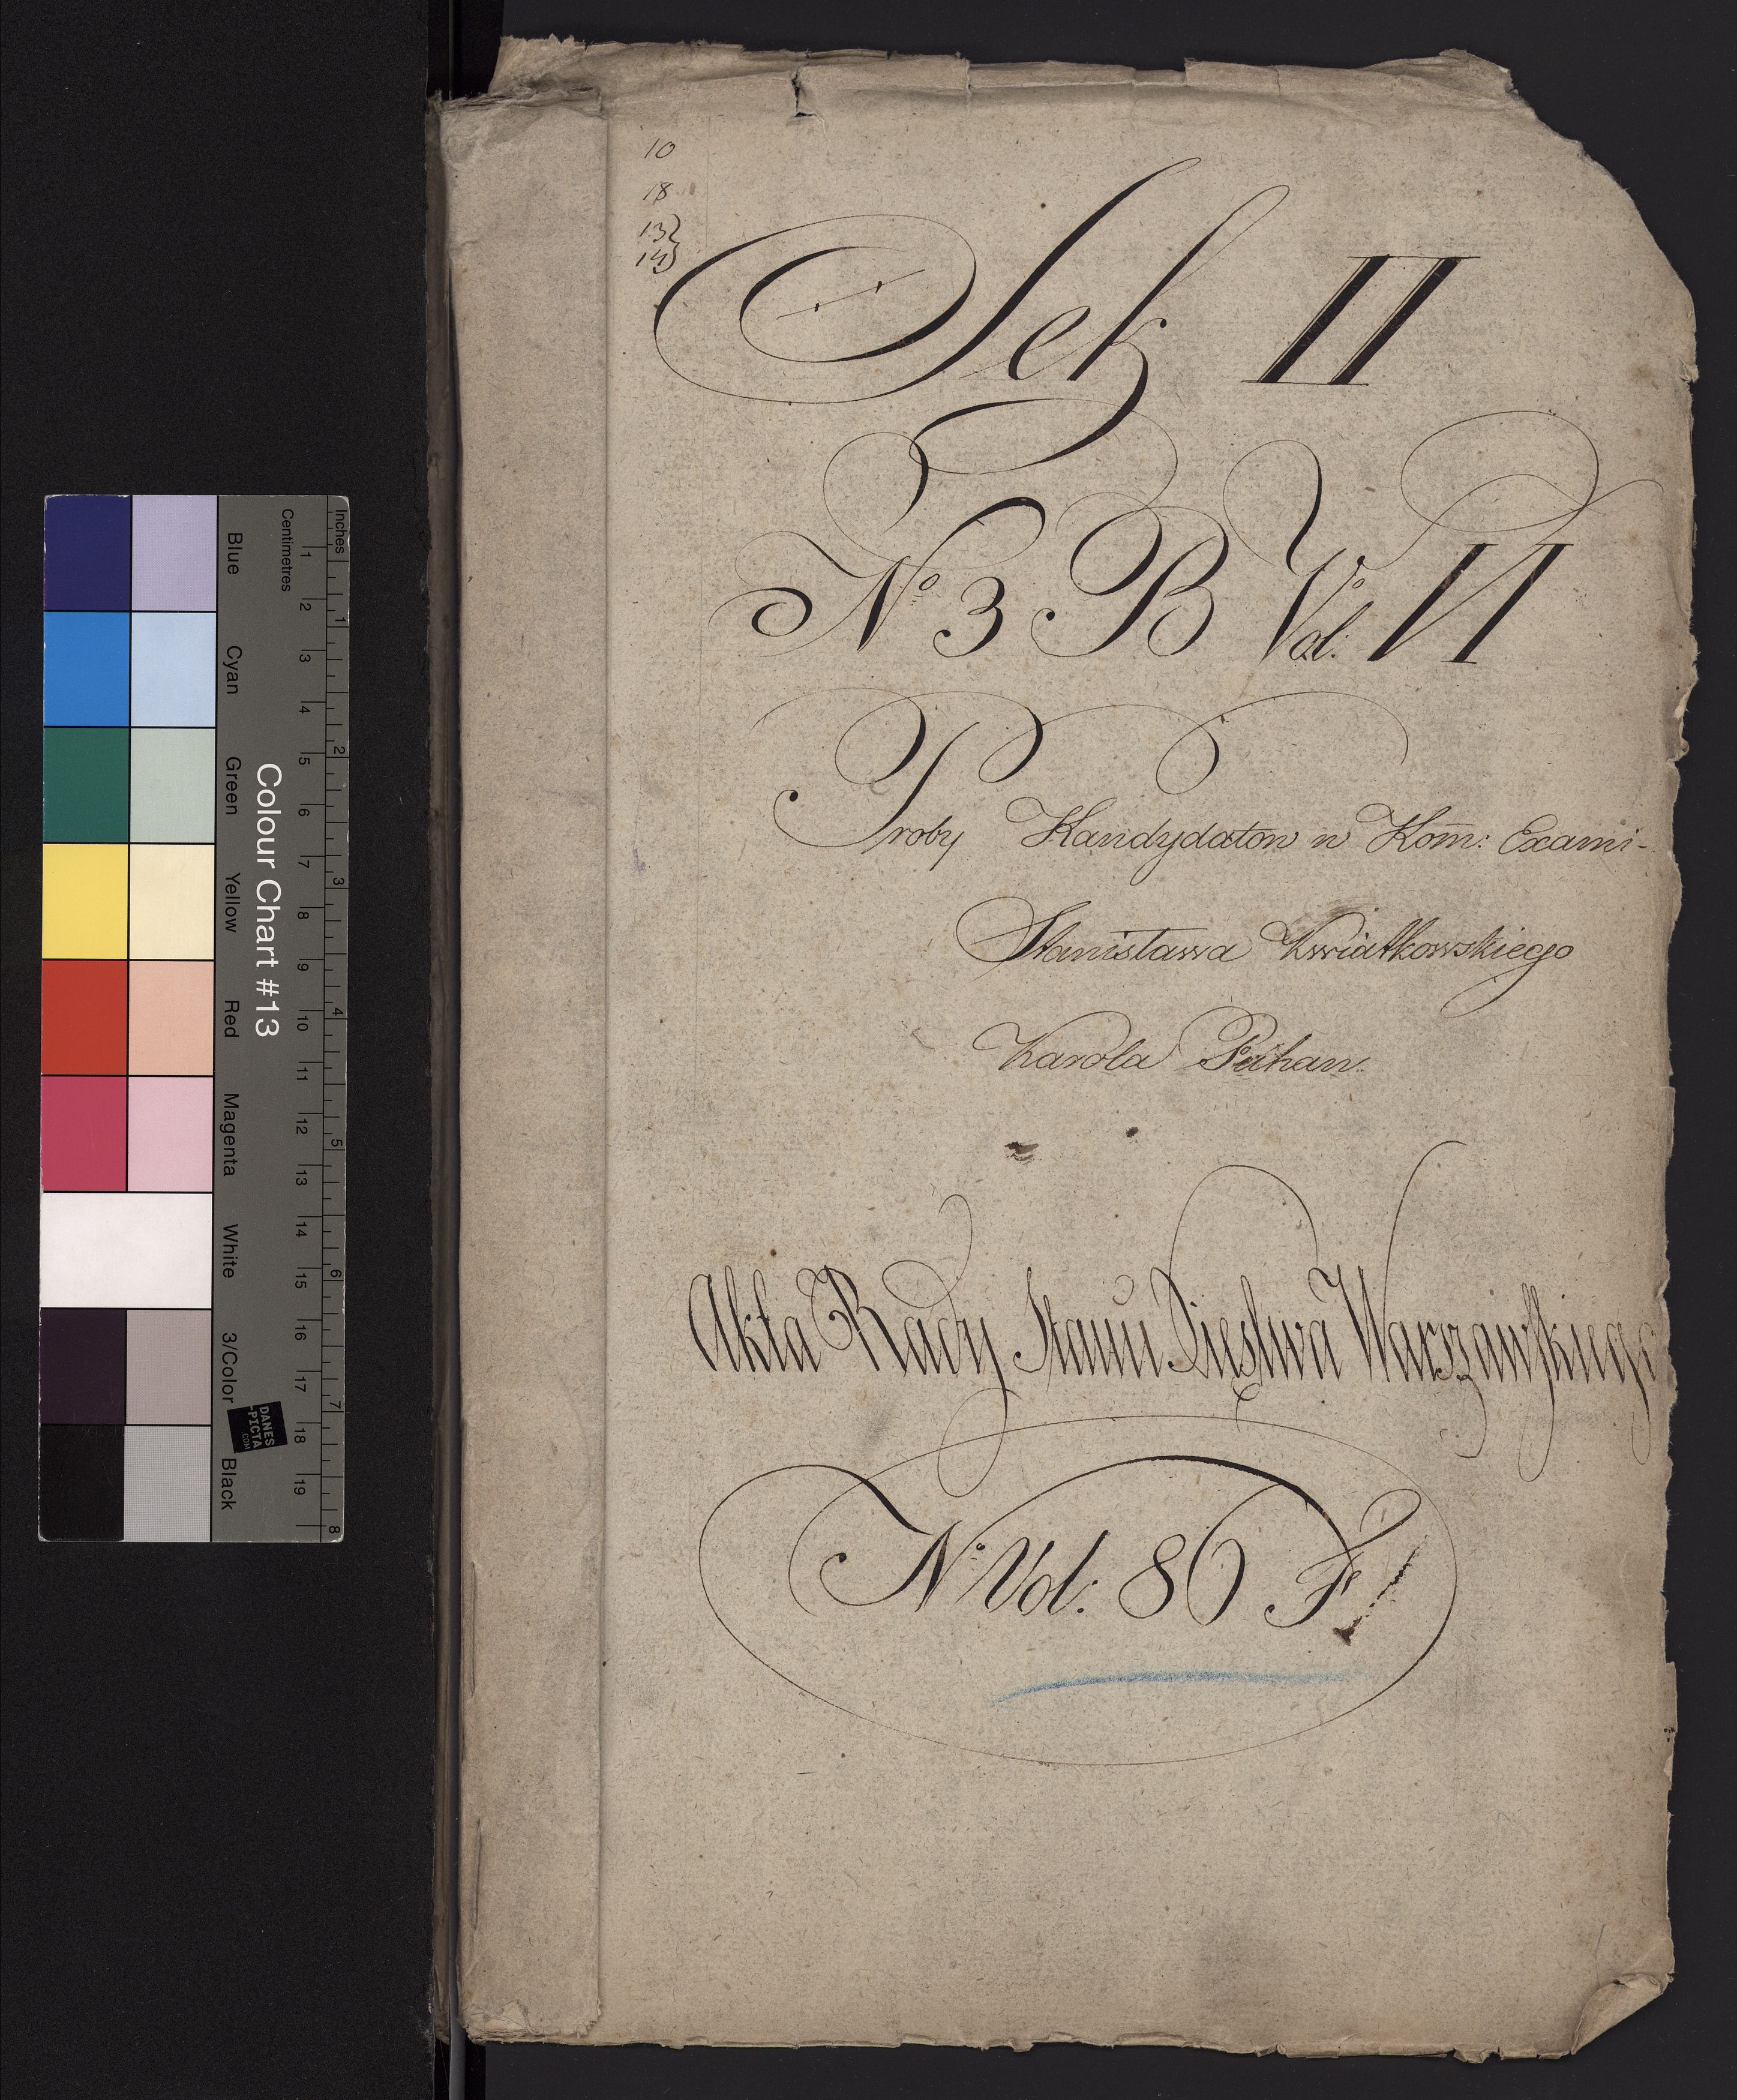 10
18
13
14
Sek II
Nº 3 B Vol: VI
Proby Kandydatow w Kom: Exami-
Stanisława Kwiatkowskiego
Karola
Akta Rady Stanu Xięstwa Warszawskiego
Nº Vol: 86 F
Colour Chart #13
Inches
Centimetres
1 2 3 4 5 6 7 8 9 10 11 12 13 14 15 16 17 18 19
1 2 3 4 5 6 7 8
Blue Cyan Green Yellow Red Magenta White 3/Color Black
DANES
-PICTA
.COM